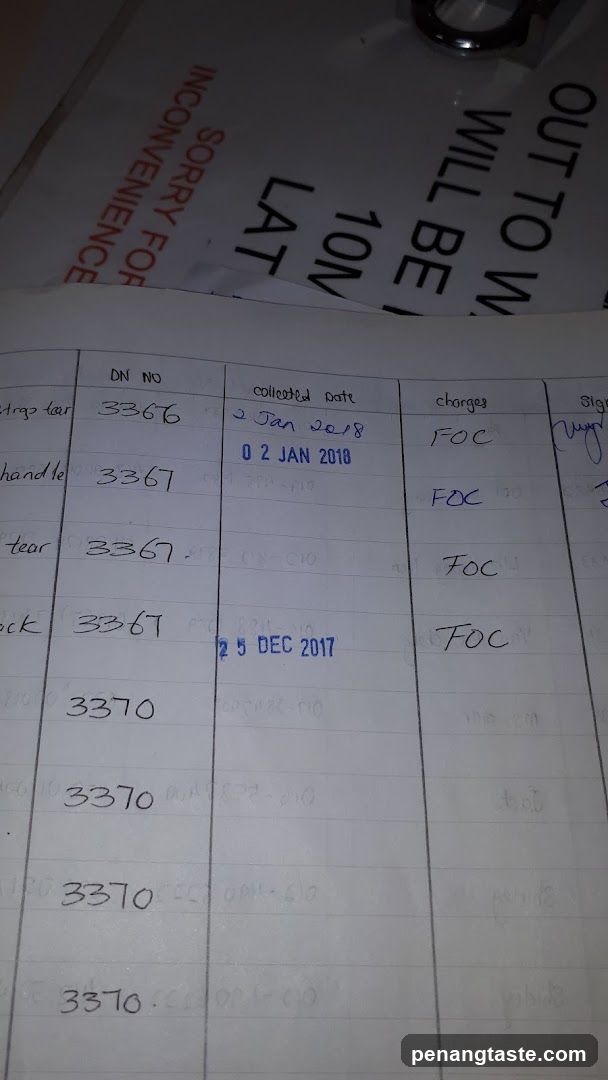 SORRY FOR
INCONVENIENCE
OUT TO W
WILL BE
10M
LAT
DN NO collected Date charges Sig
tear 3366 2 Jan 2018 FOC
02 JAN 2018
handle 3367 FOC
tear 3367. FOC
ck 3367 25 DEC 2017 FOC
3370
3370
3370
3370.
penangtaste.com